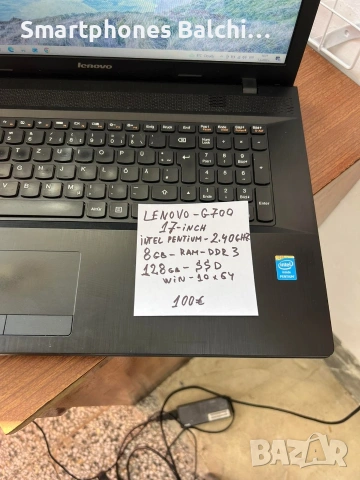 Smartphones Balchi...
lenovo
LENOVO-G700
17-INCH
INTEL PENTIUM-2.40GHz
8GB-RAM-DDR3
128GB-SSD
WIN-10x64
100€
intel
BAZAR